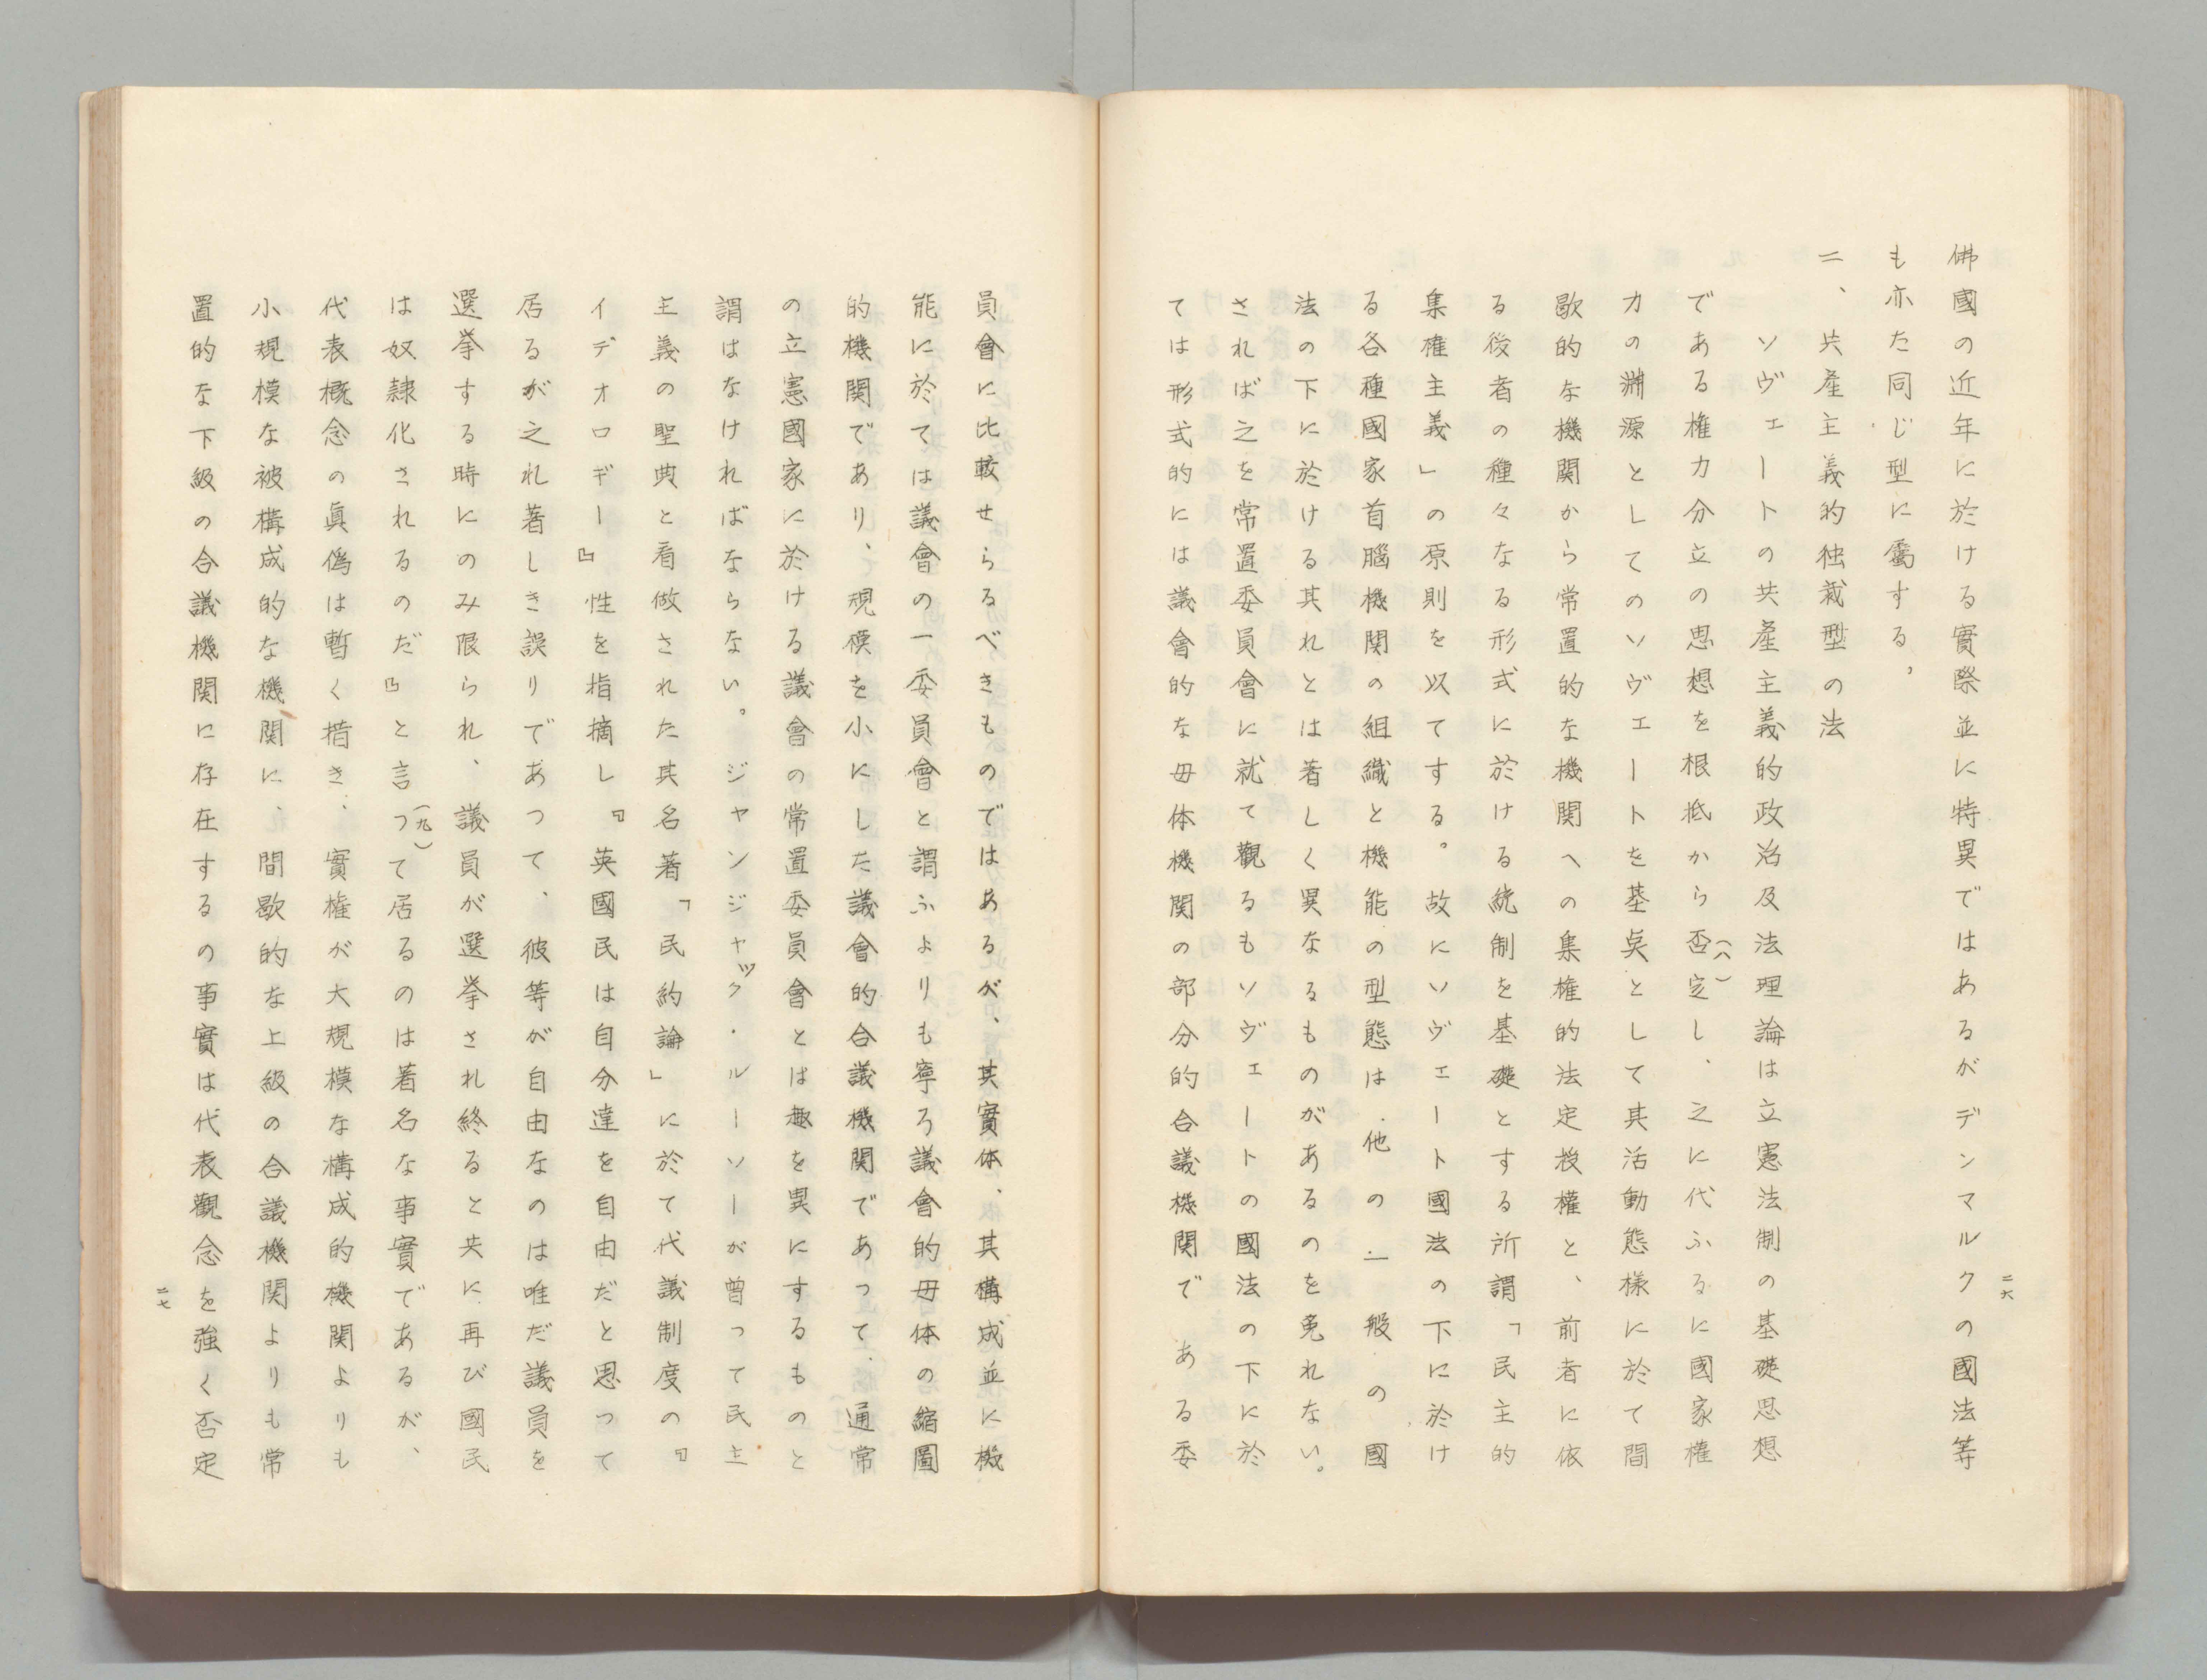 佛國の近年に於ける實際並に特異ではあるがデンマルクの國法等
も亦た同じ型に屬する。
二、共産主義的独裁型の法
ソヴェートの共産主義的政治及法理論は立憲法制の基礎思想
である権力分立の思想を根柢から否定(一八)し、之に代ふるに國家權
力の淵源としてのソヴエートを基奌として其活動態様に於て間
歇的な機関から常置的な機関への集権的法定授權と、前者に依
る後者の種々なる形式に於ける統制を基礎とする所謂「民主的
集権主義」の原則を以てする。故にソヴエート國法の下に於け
る各種國家首腦機関の組織と機能の型態は、他の一般の國
法の下に於ける其れとは著しく異なるものがあるのを免れない。
されば之を常置委員會に就て觀るもソヴェートの國法の下に於
ては形式的には議會的な母体機関の部分的合議機関である委
二六
員會に比較せらるべきものではあるが、其實体、其構成並に機
能に於ては議會の一委員會と謂ふよりも寧ろ議會的母体の縮圖
的機関であり、規模を小にした議會的合議機関であって、通常
の立憲國家に於ける議會の常置委員會とは趣を異にするものと
謂はなければならない。ジャンジャック・ルーソーが曽って民主
主義の聖典と看做された其名著「民約論」に於て代議制度の『
イデオロギー』性を指摘し『英國民は自分達を自由だと思って
居るが之れ著しき誤りであつて、彼等が自由なのは唯だ議員を
選挙する時にのみ限られ、議員が選挙され終ると共に再び國民
は奴隷化されるのだ』と言つ(一九)て居るのは著名な事實であるが、
代表概念の眞僞は暫く措き、實権が大規模な構成的機関よりも
小規模な被構成的な機関に、間歇的な上級の合議機関よりも常
置的な下級の合議機関に存在するの事實は代表觀念を強く否定
二七